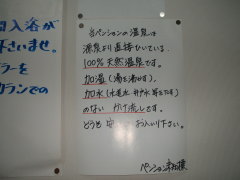 当ペンションの温泉は
源泉より直接ひいている、
100%天然温泉です。
加温(湯を沸かす)、
加水(水道水、井戸水等を足す)
のない かけ流しです。
どうぞ お入り下さい。
ペンション
間入浴が
さいませ。
ラーを
カランでの